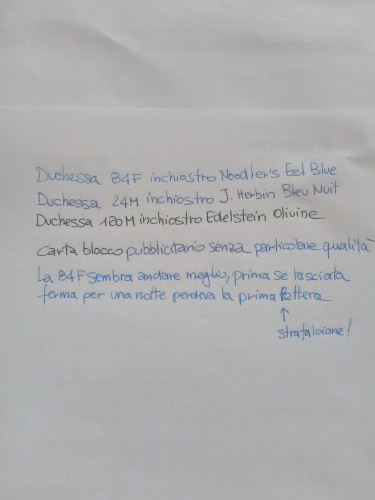 Duchessa 84F inchiostro Noodler's Eel Blue
Duchessa 24M inchiostro J. Herbin Bleu Nuit
Duchessa 120M inchiostro Edelstein Olivine
Carta blocco pubblicitario senza particolare qualità
La 84F sembra andare meglio, prima se lasciata
ferma per una notte perdeva la prima lettera
↑
strafalcione!